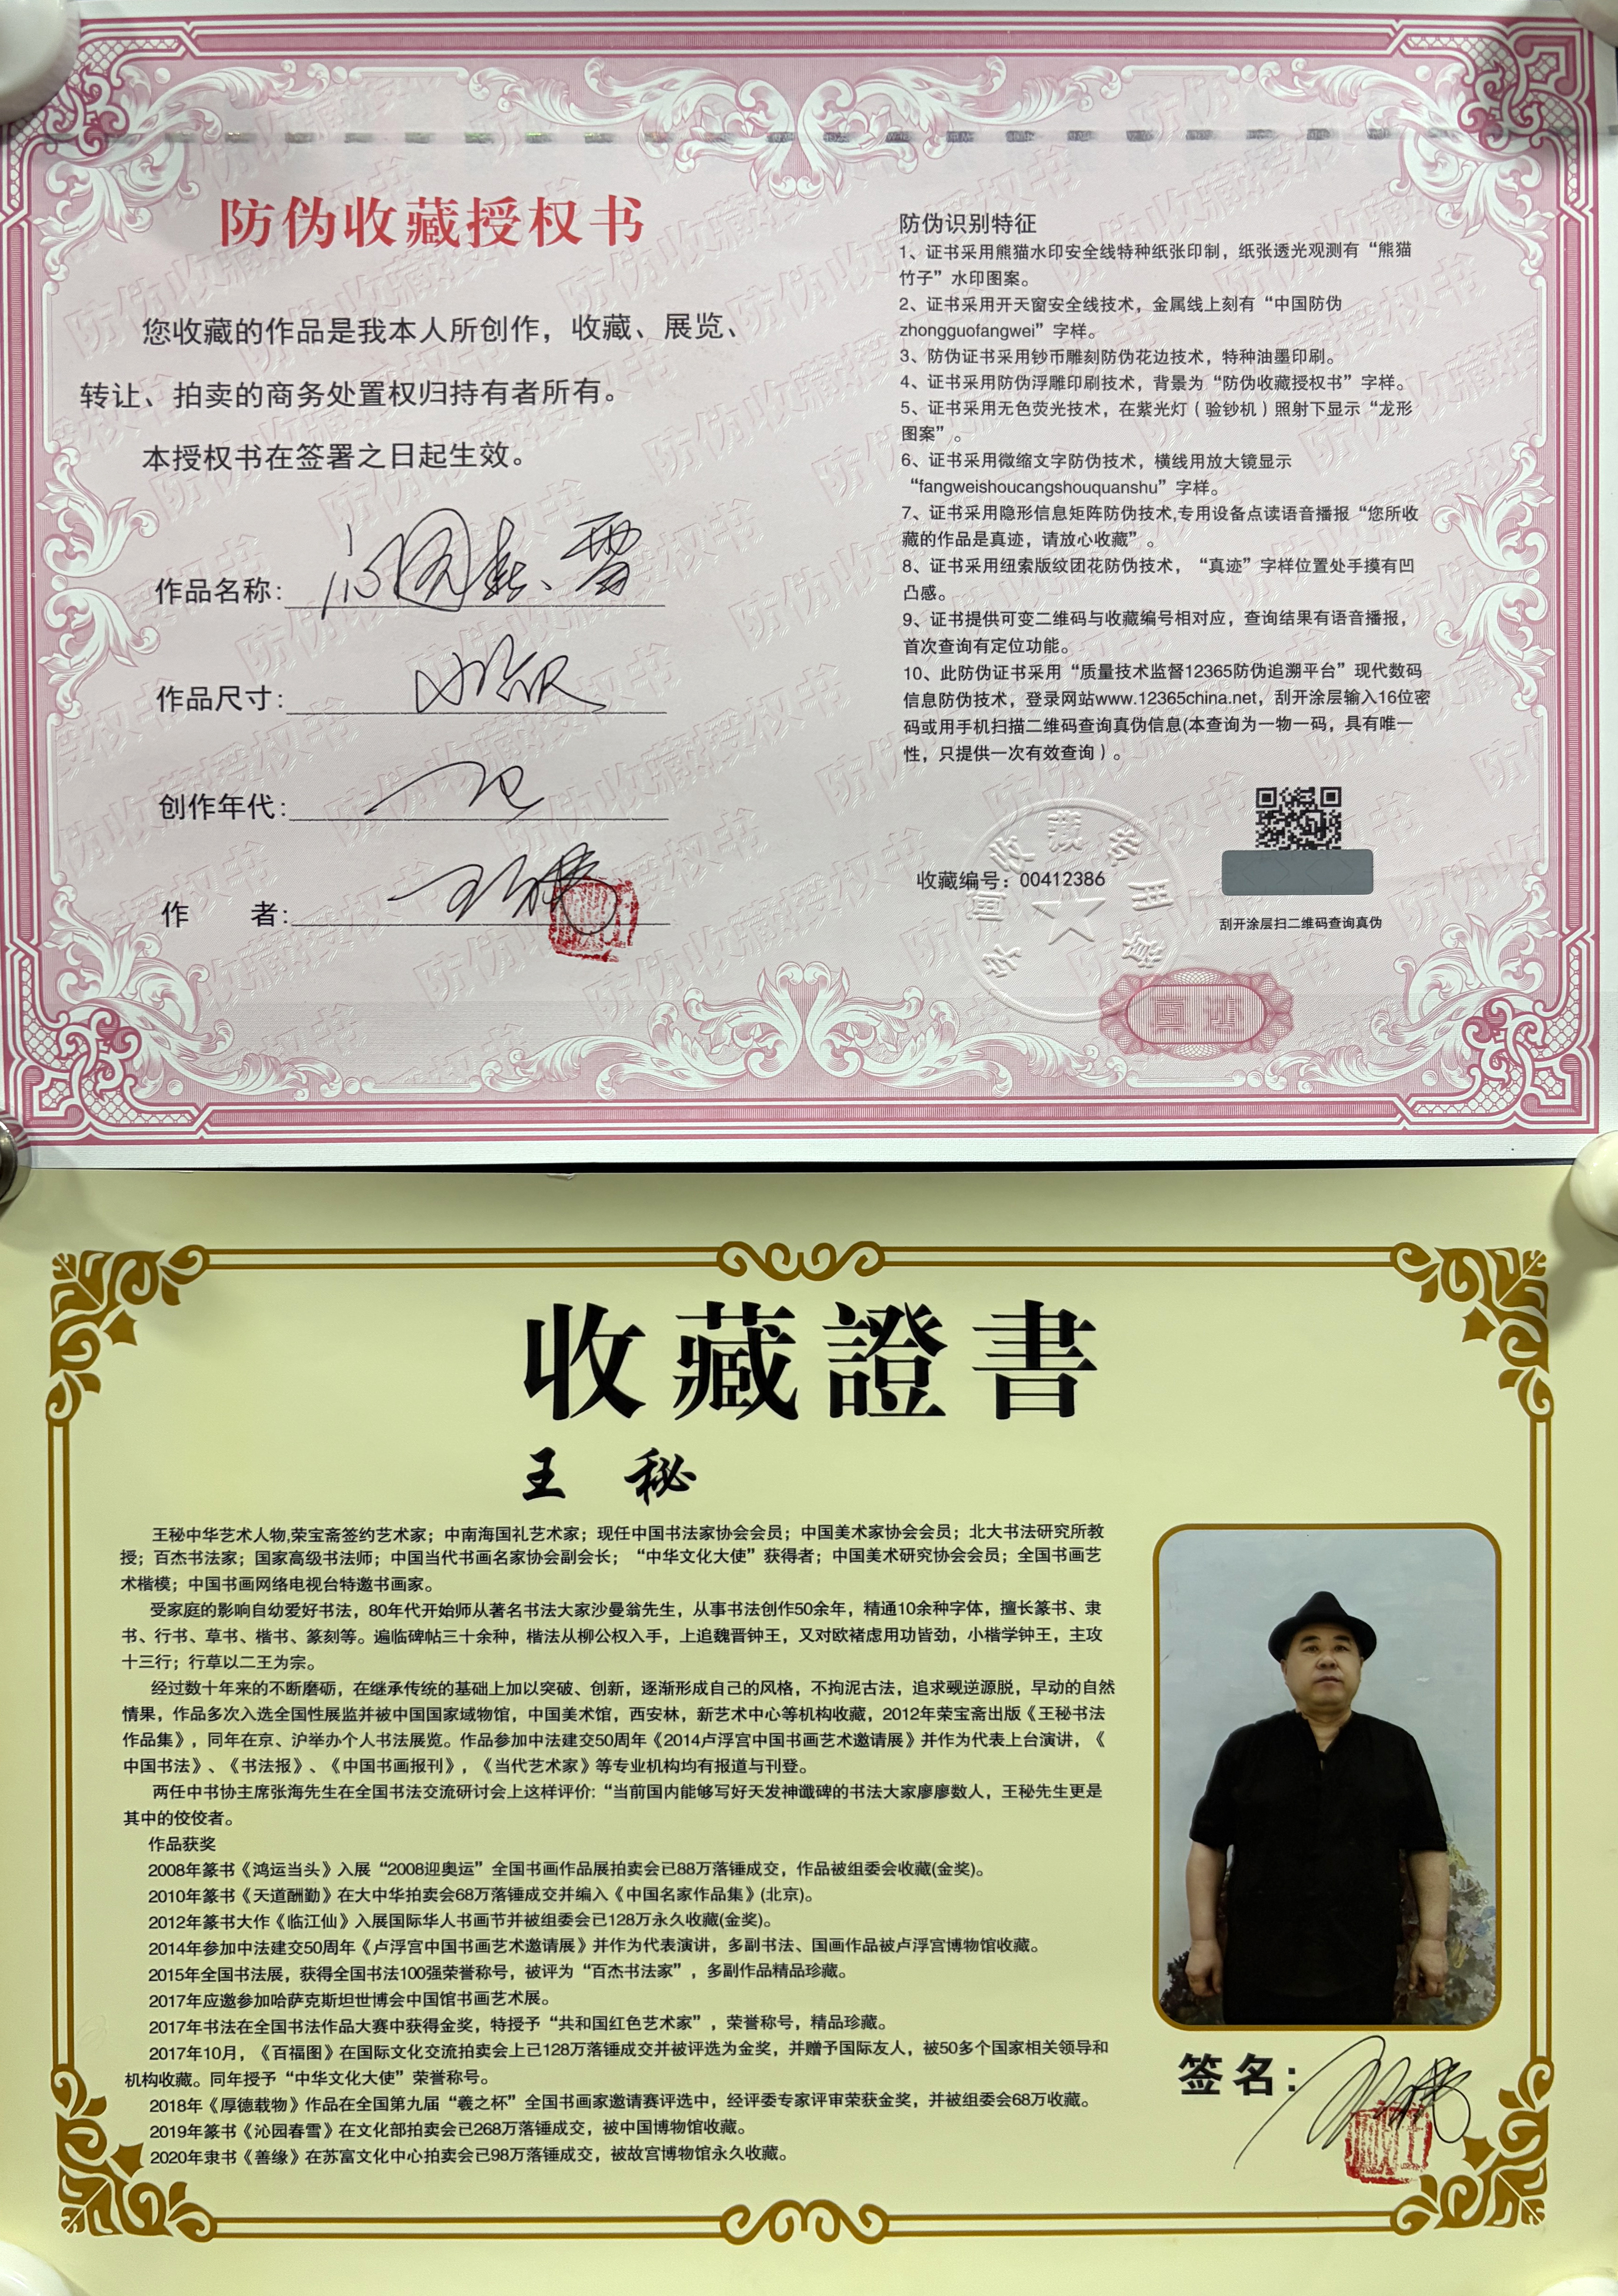 防伪收藏授权书
您收藏的作品是我本人所创作，收藏、展览、
转让、拍卖的商务处置权归持有者所有。
本授权书在签署之日起生效。
作品名称：沁园春·雪
作品尺寸：
创作年代：
作 者：王秘
防伪识别特征
1、证书采用熊猫水印安全线特种纸张印制，纸张透光观测有“熊猫
竹子”水印图案。
2、证书采用开天窗安全线技术，金属线上刻有“中国防伪
zhongguofangwei”字样。
3、防伪证书采用钞币雕刻防伪花边技术，特种油墨印刷。
4、证书采用防伪浮雕印刷技术，背景为“防伪收藏授权书”字样。
5、证书采用无色荧光技术，在紫光灯（验钞机）照射下显示“龙形
图案”。
6、证书采用微缩文字防伪技术，横线用放大镜显示
“fangweishoucangshouquanshu”字样。
7、证书采用隐形信息矩阵防伪技术,专用设备点读语音播报“您所收
藏的作品是真迹，请放心收藏”。
8、证书采用纽索版纹团花防伪技术，“真迹”字样位置处手摸有凹
凸感。
9、证书提供可变二维码与收藏编号相对应，查询结果有语音播报，
首次查询有定位功能。
10、此防伪证书采用“质量技术监督12365防伪追溯平台”现代数码
信息防伪技术，登录网站www.12365china.net，刮开涂层输入16位密
码或用手机扫描二维码查询真伪信息(本查询为一物一码，具有唯一
性，只提供一次有效查询）。
收藏编号：00412386
刮开涂层扫二维码查询真伪
真迹
收藏證書
王 秘
王秘中华艺术人物,荣宝斋签约艺术家；中南海国礼艺术家；现任中国书法家协会会员；中国美术家协会会员；北大书法研究所教
授；百杰书法家；国家高级书法师；中国当代书画名家协会副会长；“中华文化大使”获得者；中国美术研究协会会员；全国书画艺
术楷模；中国书画网络电视台特邀书画家。
受家庭的影响自幼爱好书法，80年代开始师从著名书法大家沙曼翁先生，从事书法创作50余年，精通10余种字体，擅长篆书、隶
书、行书、草书、楷书、篆刻等。遍临碑帖三十余种，楷法从柳公权入手，上追魏晋钟王，又对欧褚虑用功皆劲，小楷学钟王，主攻
十三行；行草以二王为宗。
经过数十年来的不断磨砺，在继承传统的基础上加以突破、创新，逐渐形成自己的风格，不拘泥古法，追求觋逆源脱，早动的自然
情果，作品多次入选全国性展监并被中国国家域物馆，中国美术馆，西安林，新艺术中心等机构收藏，2012年荣宝斋出版《王秘书法
作品集》，同年在京、沪举办个人书法展览。作品参加中法建交50周年《2014卢浮宫中国书画艺术邀请展》并作为代表上台演讲，《
中国书法》、《书法报》、《中国书画报刊》，《当代艺术家》等专业机构均有报道与刊登。
两任中书协主席张海先生在全国书法交流研讨会上这样评价:“当前国内能够写好天发神谶碑的书法大家廖廖数人，王秘先生更是
其中的佼佼者。
作品获奖
2008年篆书《鸿运当头》入展“2008迎奥运”全国书画作品展拍卖会已88万落锤成交，作品被组委会收藏(金奖)。
2010年篆书《天道酬勤》在大中华拍卖会68万落锤成交并编入《中国名家作品集》(北京)。
2012年篆书大作《临江仙》入展国际华人书画节并被组委会已128万永久收藏(金奖)。
2014年参加中法建交50周年《卢浮宫中国书画艺术邀请展》并作为代表演讲，多副书法、国画作品被卢浮宫博物馆收藏。
2015年全国书法展，获得全国书法100强荣誉称号，被评为“百杰书法家”，多副作品精品珍藏。
2017年应邀参加哈萨克斯坦世博会中国馆书画艺术展。
2017年书法在全国书法作品大赛中获得金奖，特授予“共和国红色艺术家”，荣誉称号，精品珍藏。
2017年10月，《百福图》在国际文化交流拍卖会上已128万落锤成交并被评选为金奖，并赠予国际友人，被50多个国家相关领导和
机构收藏。同年授予“中华文化大使”荣誉称号。
2018年《厚德载物》作品在全国第九届“羲之杯”全国书画家邀请赛评选中，经评委专家评审荣获金奖，并被组委会68万收藏。
2019年篆书《沁园春雪》在文化部拍卖会已268万落锤成交，被中国博物馆收藏。
2020年隶书《善缘》在苏富文化中心拍卖会已98万落锤成交，被故宫博物馆永久收藏。
签名：